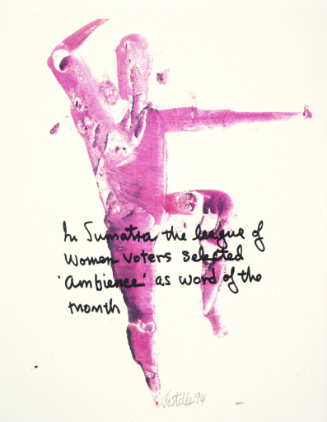 In Sumatra the league of
Women Voters selected
'Ambience' as word of the
month